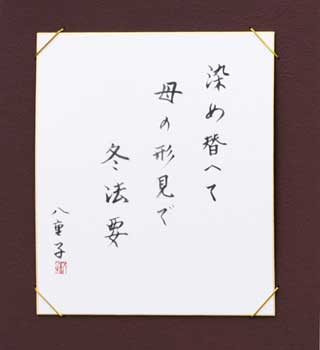 染め替へて
母の形見で
冬法要
八重子